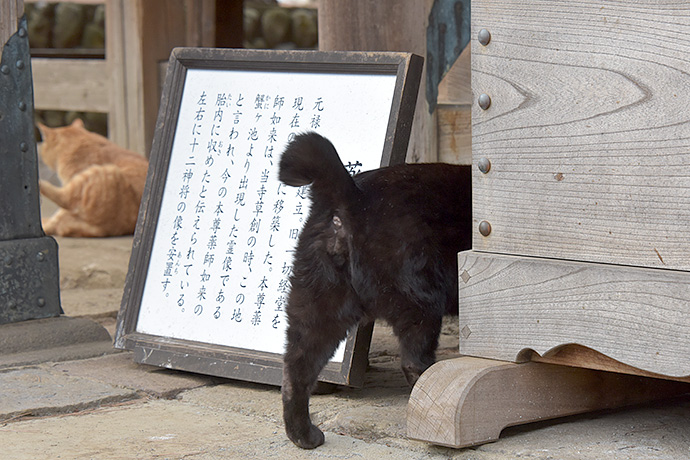 薬
元禄
現在の
建立。一切経堂を
に移築した。本尊薬
師如来は、当寺草創の時、この地
蟹ヶ池より出現した霊像である
かに
と言われ、今の本尊薬師如来の
胎内に収めたと伝えられている。
たい
左右に十二神将の像を安置す。
あんち